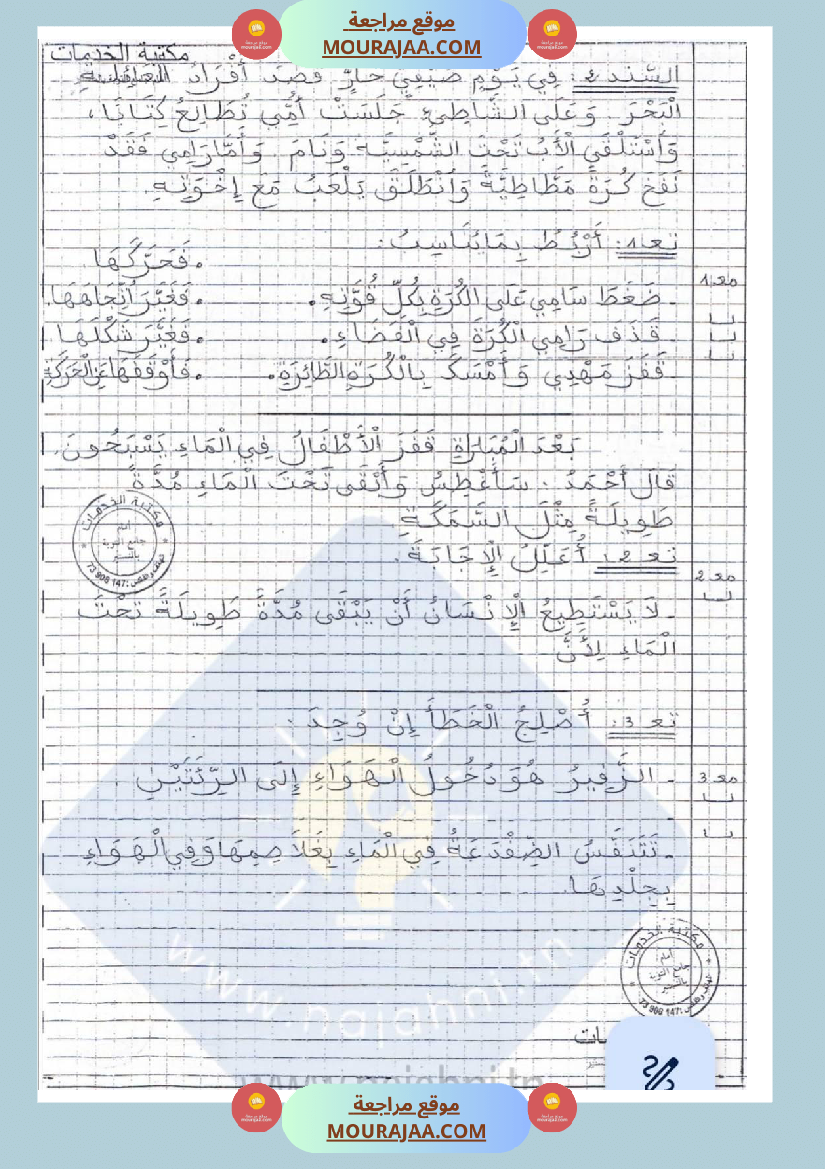 موقع مراجعة
MOURAJAA.COM
مكتبة الخدمات
السّند 2: فِي يَوْمٍ صَيْفِيٍّ حَارٍّ قصد أَفْرَاد العائلة
الْبَحْرَ. وَعَلَى الشَّاطِئِ جَلَسَتْ أُمِّي تُطَالِعُ كِتَابًا،
وَاسْتَلْقَى الْأَبُ تَحْتَ الشَّمْسِيَّةِ وَنَامَ. وَأَمَّا رَامِي فَقَدْ
نَفَخَ كُرَةً مَطَّاطِيَّةً وَانْطَلَقَ يَلْعَبُ مَعَ إِخْوَتِهِ.
تعـ1: أَرْبِطُ بِمَا يُنَاسِبُ:
• فَحَرَّكَهَا
معـ1
- ضَغَطَ سَامِي عَلَى الْكُرَةِ بِكُلِّ قُوَّتِهِ. • فَغَيَّرَ اتِّجَاهَهَا
- قَذَفَ رَامِي الْكُرَةَ فِي الْفَضَاءِ. • فَغَيَّرَ شَكْلَهَا
- قَفَزَ مَهْدِي وَأَمْسَكَ بِالْكُرَةِ الطَّائِرَةِ. • فَأَوْقَفَهَا عَنِ الْحَرَكَةِ
بَعْدَ الْمُبَارَاةِ قَفَزَ الْأَطْفَالُ فِي الْمَاءِ يَسْبَحُونَ.
قَالَ أَحْمَدُ: سَأَغْطِسُ وَأَبْقَى تَحْتَ الْمَاءِ مُدَّةً
طَوِيلَةً مِثْلَ السَّمَكَةِ
تعـ2: أُعَلِّلُ الْإِجَابَةَ.
معـ2
- لَا يَسْتَطِيعُ الْإِنْسَانُ أَنْ يَبْقَى مُدَّةً طَوِيلَةً تَحْتَ
الْمَاءِ لِأَنَّ
تعـ3: أُصْلِحُ الْخَطَأَ إِنْ وُجِدَ:
معـ3
- الزَّفِيرُ هُوَ دُخُولُ الْهَوَاءِ إِلَى الرِّئَتَيْنِ.
- تَتَنَفَّسُ الضِّفْدَعَةُ فِي الْمَاءِ بِغَلَاصِمِهَا وَفِي الْهَوَاءِ
بِجِلْدِهَا.
مكتبة الخدمات
www.najahni.tn
www.najahni.tn
موقع مراجعة
MOURAJAA.COM